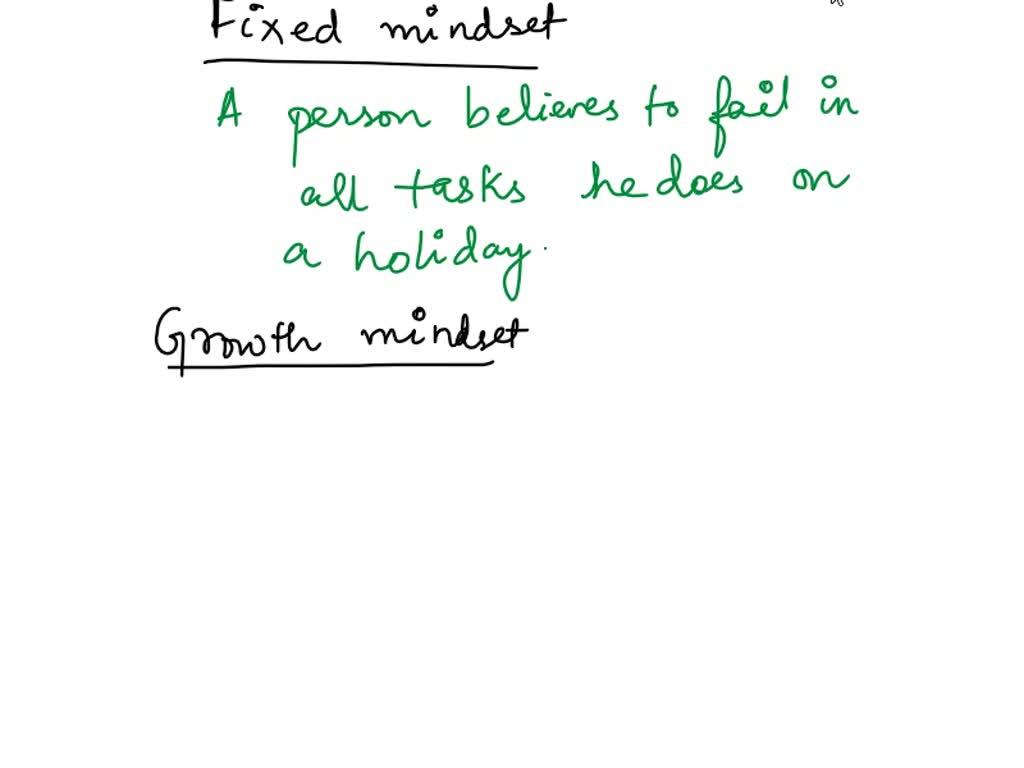 Fixed mindset
A person believes to fail in
all tasks he does on
a holiday.
Growth mindset